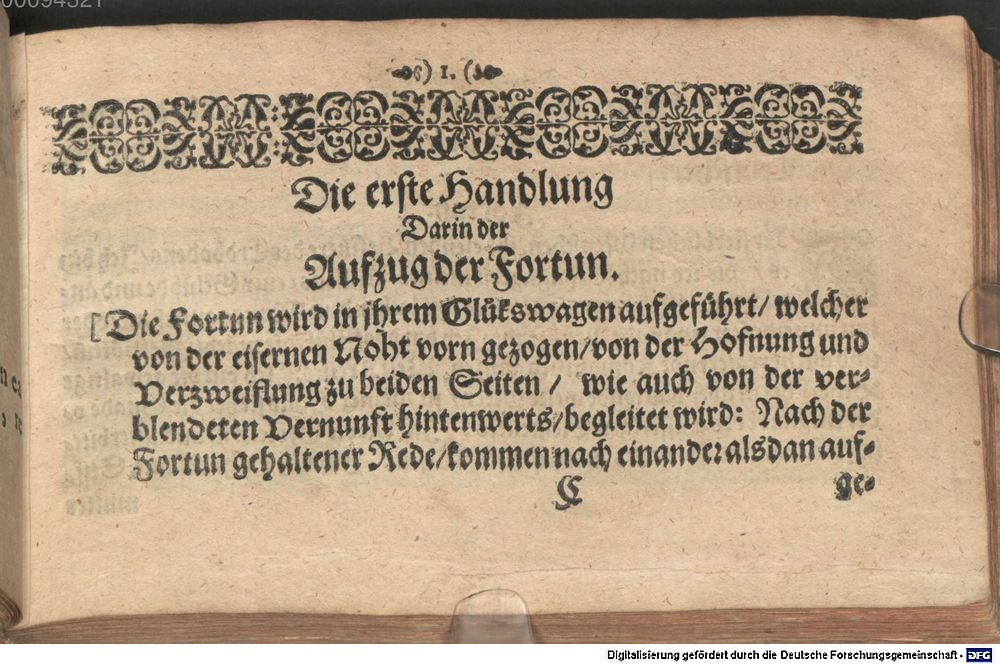 00094521
) 1. (
Die erste Handlung
Darin der
Aufzug der Fortun.
[Die Fortun wird in ihrem Glükswagen aufgeführt/ welcher
von der eisernen Noht vorn gezogen/von der Hofnung und
Verzweiflung zu beiden Seiten / wie auch von der ver-
blendeten Vernunft hintenwerts/begleitet wird: Nach der
Fortun gehaltener Rede/kommen nach einander alsdan auf-
C ge-
Digitalisierung gefördert durch die Deutsche Forschungsgemeinschaft - DFG